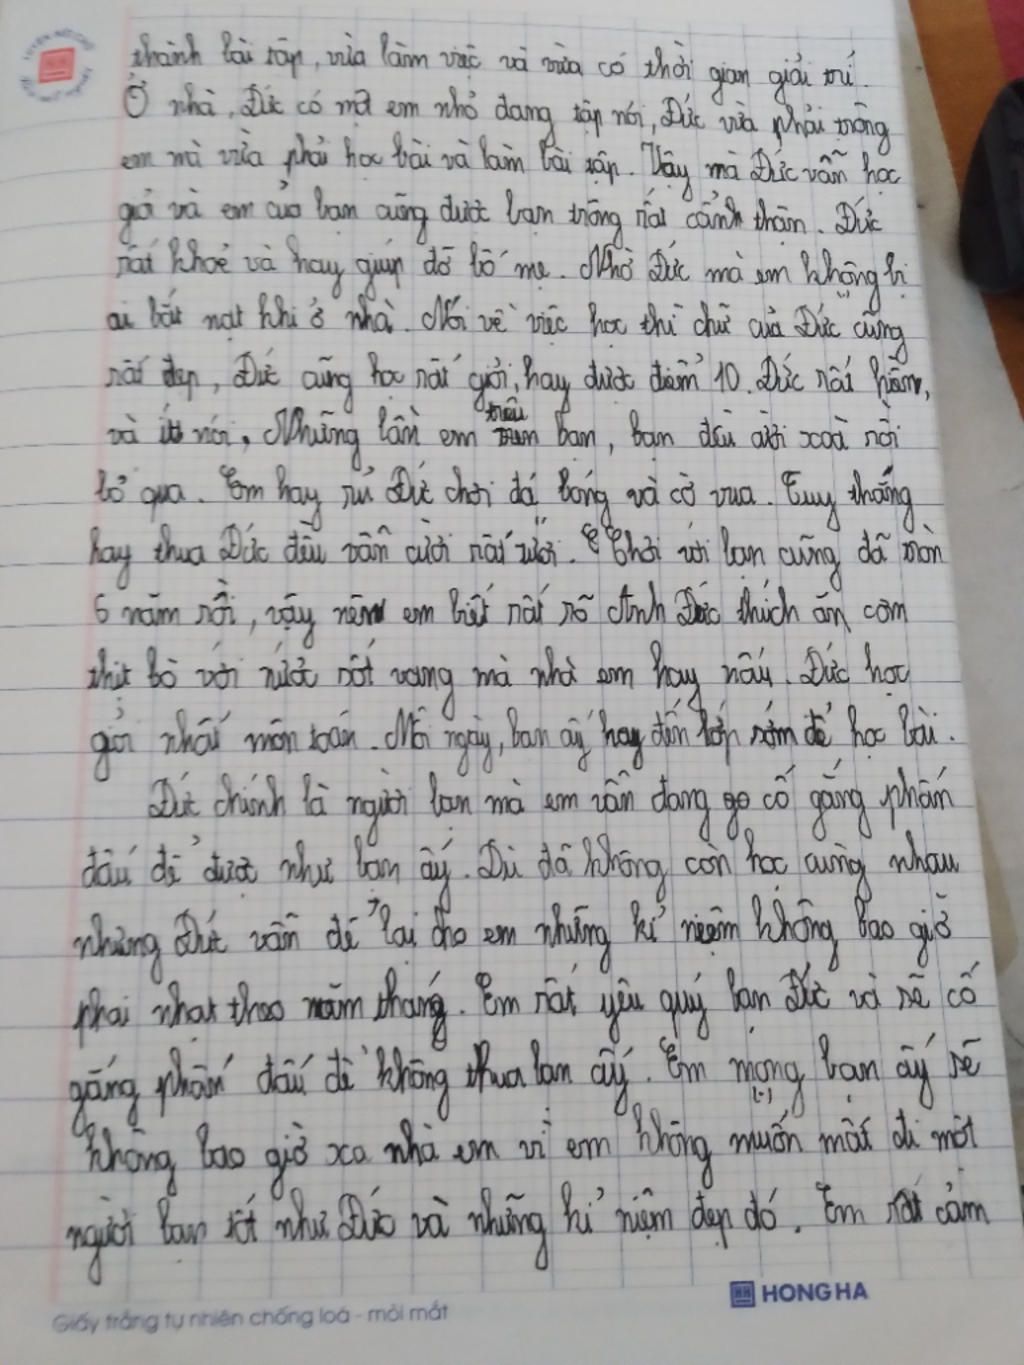 thành bài tập, vừa làm việc và vừa có thời gian giải trí.
Ở nhà, Đức có một em nhỏ đang tập nói, Đức vừa phải trông
em mà vừa phải học bài và làm bài tập. Vậy mà Đức vẫn học
giỏi và em của bạn cũng được bạn trông rất cẩnh thận. Đức
rất khoẻ và hay giúp đỡ bố mẹ. Nhờ Đức mà em không bị
ai bắt nạt khi ở nhà. Nói về việc học thì chữ của Đức cũng
rất đẹp, Đức cũng học rất giỏi, hay được điểm 10. Đức rất hiền,
và ít nói. Những lần em trêu bạn, bạn đều cười xoà rồi
bỏ qua. Em hay rủ Đức chơi đá bóng và cờ vua. Tuy thắng
hay thua Đức đều vẫn cười rất tươi. Chơi với bạn cũng đã tròn
5 năm rồi, vậy nên em biết rất rõ Anh Đức thích ăn cơm
thịt bò với nước sốt vang mà nhà em hay nấu. Đức học
giỏi nhất môn toán. Mỗi ngày, bạn ấy hay đến lớp sớm để học bài.
Đức chính là người bạn mà em vẫn đang cố gắng phấn
đấu để được như bạn ấy. Dù đã không còn học cùng nhau
nhưng Đức vẫn để lại cho em những kỉ niệm không bao giờ
phai nhạt theo năm tháng. Em rất yêu quý bạn Đức và sẽ cố
gắng phấn đấu để không thua bạn ấy. Em mong bạn ấy sẽ
không bao giờ xa nhà em vì em không muốn mất đi một
người bạn tốt như Đức và những kỉ niệm đẹp đó. Em rất cảm
HONG HA
Giấy trắng tự nhiên chống loá - mỏi mắt